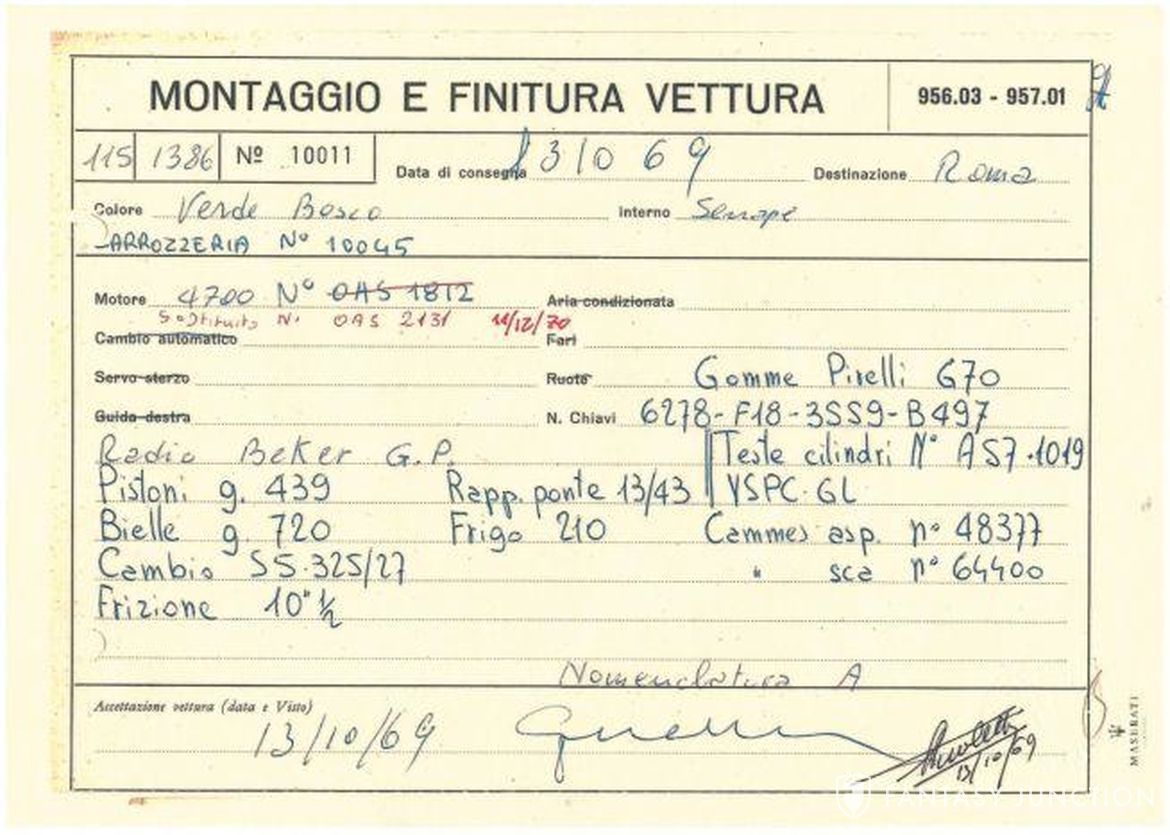 MONTAGGIO E FINITURA VETTURA 956.03 - 957.01
115 1386 Nº 10011 Data di consegna 13 10 69 Destinazione Roma
Colore Verde Bosco Interno Senape
CARROZZERIA Nº 10045
Motore 4700 Nº OAS 1812 Aria condizionata
Sostituito N. OAS 2131 11/12/70
Cambio automatico Fari
Servo sterzo Ruote Gomme Pirelli G70
Guida destra N. Chiavi 6278-F18-3SS9-B497
Radio Beker G.P. Teste cilindri Nº AS7.1019
Pistoni g. 439 Rapp. ponte 13/43 VSPC.GL
Bielle g. 720 Frigo 210 Cammes asp. nº 48377
Cambio S5.325/27 " sca nº 64400
Frizione 10"½
Nomenclatura A
Accettazione vettura (data e Visto)
13/10/69
13/10/69
MASERATI
FANTASY JUNCTION